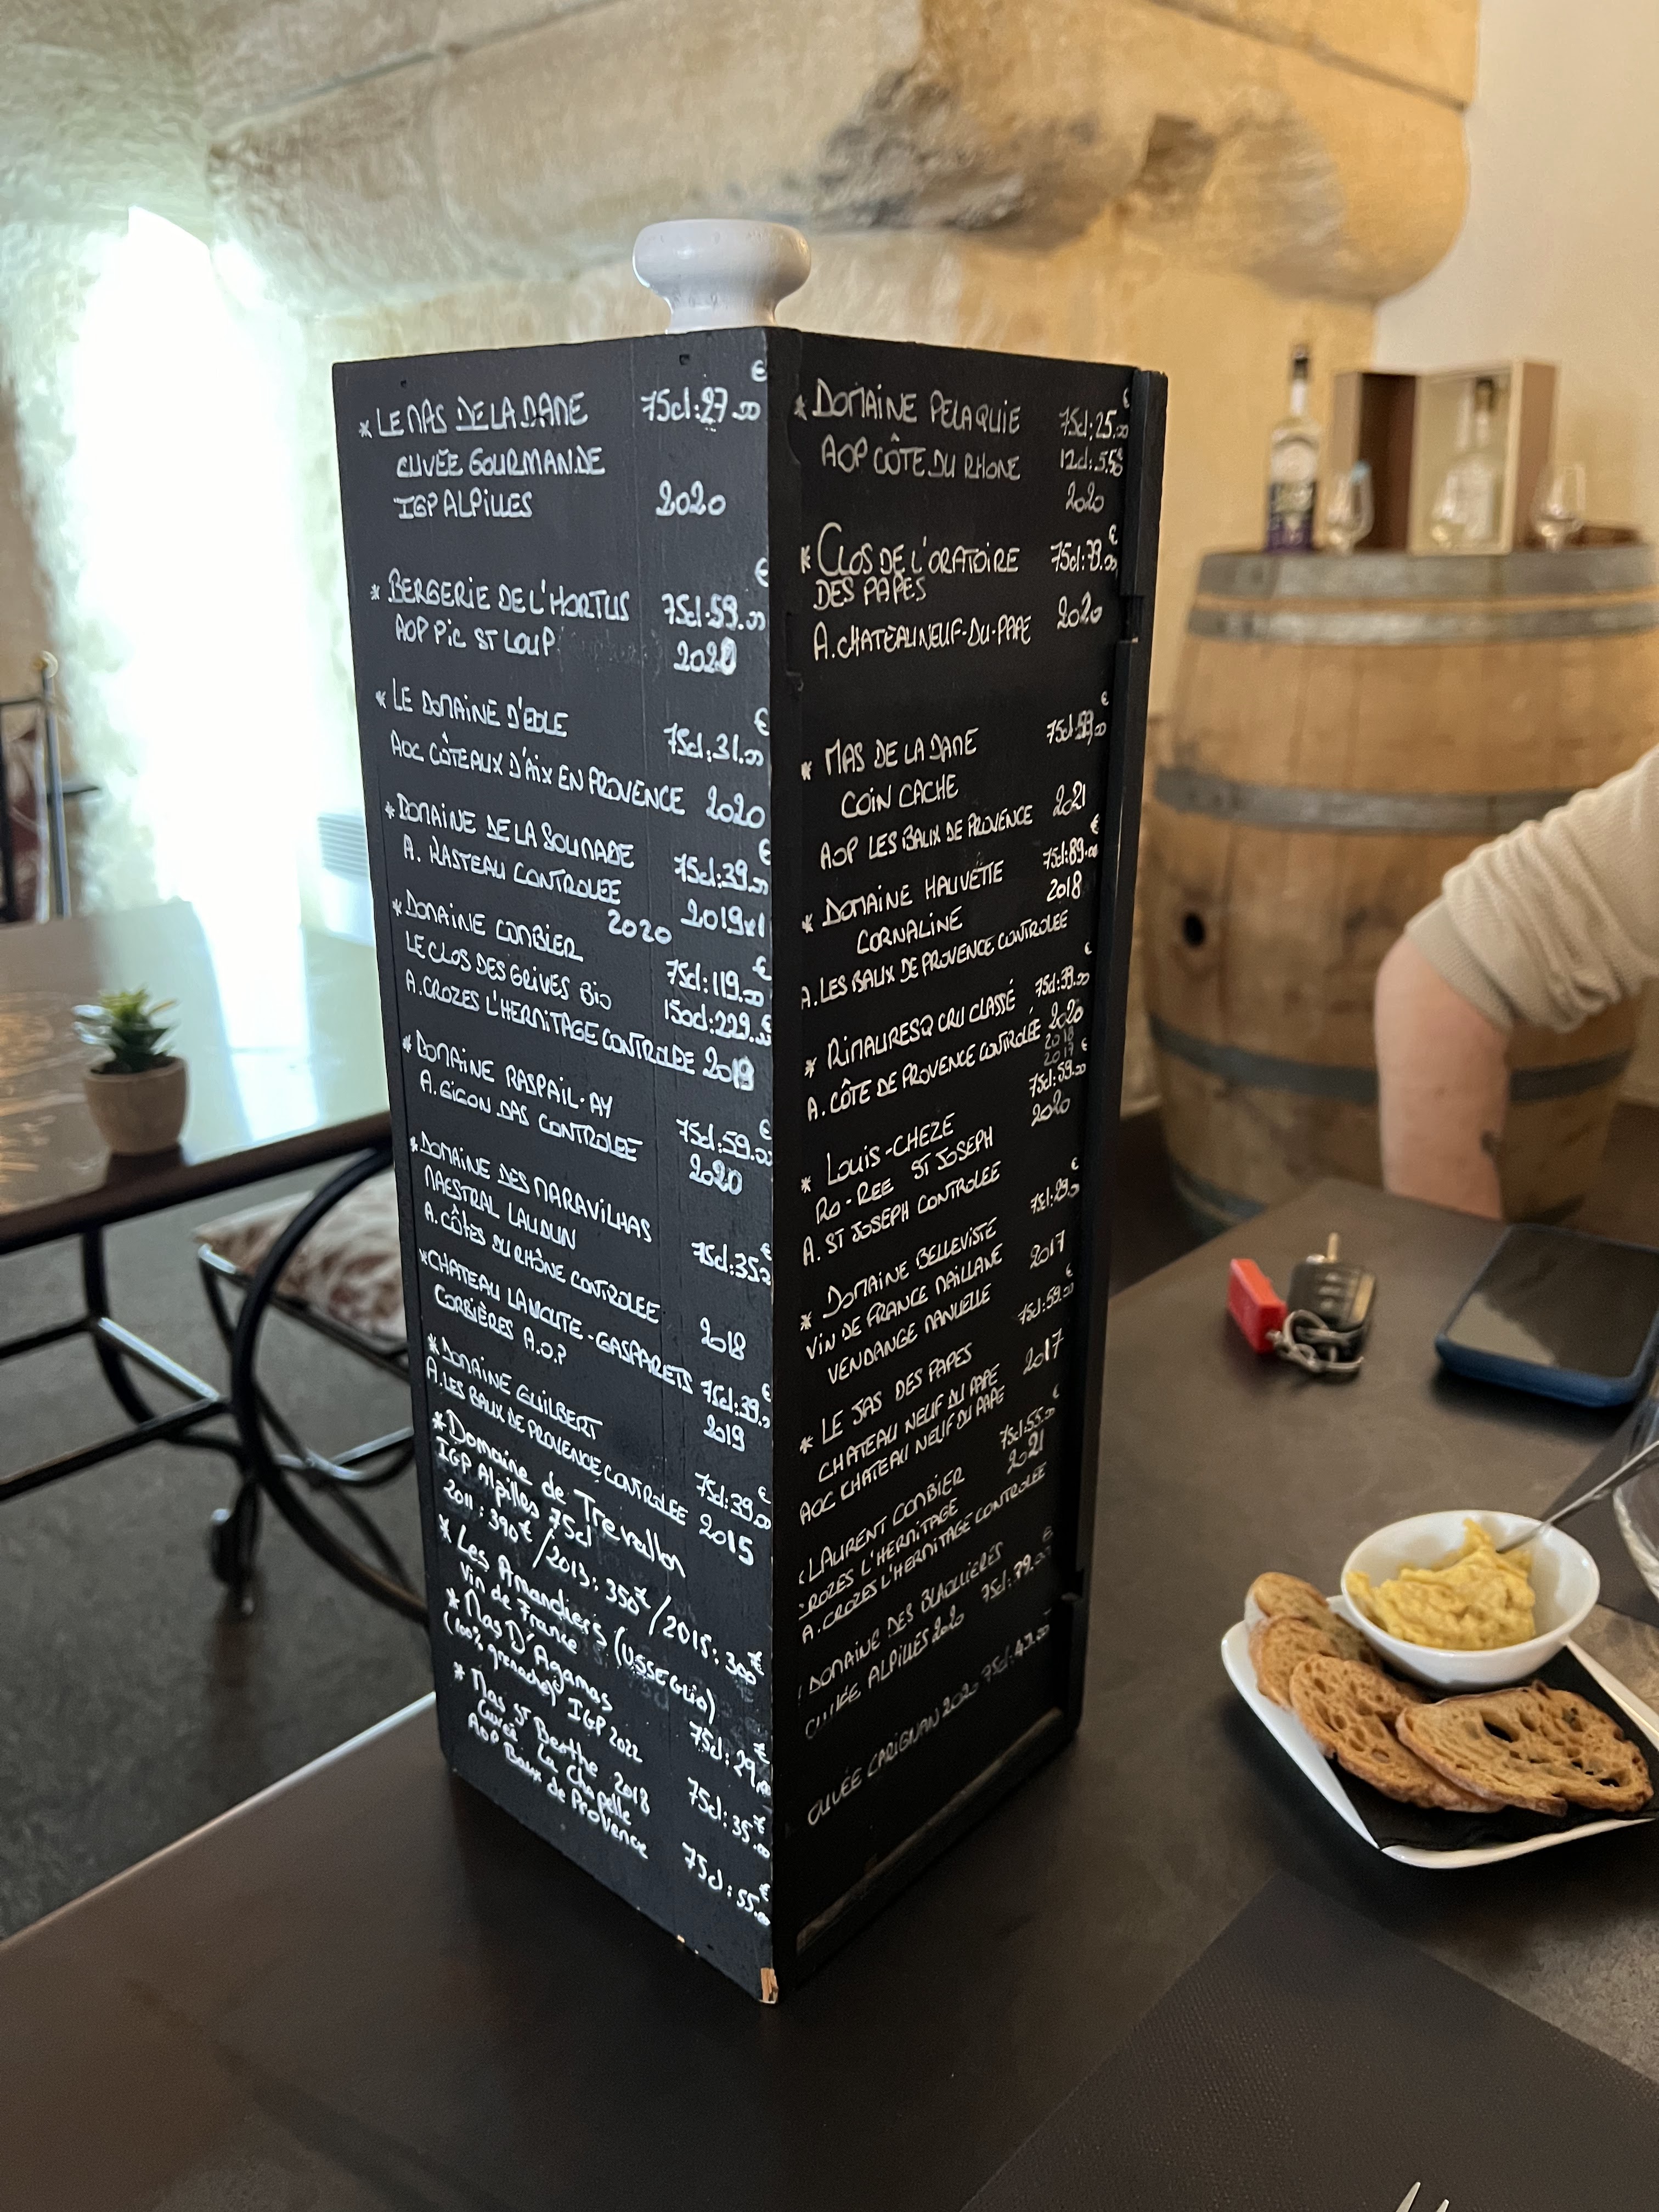 €
* LE MAS DE LA DAME 75cl:27.00
CUVÉE GOURMANDE
IGP ALPILLES 2020
€
* BERGERIE DE L'HORTUS 75cl:59.00
AOP PIC ST LOUP 2020
* LE DOMAINE D'EOLE €
75cl:31.00
AOC CÔTEAUX D'AIX EN PROVENCE 2020
* DOMAINE DE LA SOUMADE €
75cl:39.00
A. RASTEAU CONTROLEE 2019x1
2020
* DOMAINE COMBIER €
LE CLOS DES GRIVES BIO 75cl:119.00
150cl:229.€
A.CROZES L'HERMITAGE CONTROLEE 2019
* DOMAINE RASPAIL-AY €
75cl:59.00
A. GIGON DAS CONTROLEE 2020
* DOMAINE DES MARAVILHAS
MAESTRAL LAUDUN €
75cl:35
A. CÔTES DU RHÔNE CONTROLEE 2018
* CHATEAU LAMOUTE-GASPARETS €
75cl:39.
CORBIÈRES A.O.P 2019
* DOMAINE GUILBERT €
75cl:39.00
A.LES BAUX DE PROVENCE CONTROLEE 2015
* Domaine de Trevallon
IGP Alpilles 75cl
2011: 390€/2013: 350€/2015: 300€
* Les Amandiers (USSEGLIO)
Vin de France 75cl: 29.00€
* Mas D'Agamas
(100% grenache) IGP 2022 75cl: 35.00€
* Mas St Berthe 2018
Cuvée La Chapelle
AOP Baux de Provence 75cl: 55.00€
€
* DOMAINE PELAQUIE 75cl:25.00
AOP CÔTE DU RHONE 12cl:5.5€
2020
€
* CLOS DE L'ORATOIRE 75cl:79.00
DES PAPES
A.CHATEAUNEUF-DU-PAPE 2020
€
* MAS DE LA DAME 75cl:59.00
COIN CACHE
AOP LES BAUX DE PROVENCE 2021
€
* DOMAINE HAUVETTE 75cl:89.00
CORNALINE 2018
A.LES BAUX DE PROVENCE CONTROLEE
€
* RIMAURESQ CRU CLASSÉ 75cl:39.00
A. CÔTE DE PROVENCE CONTROLÉE 2020
2018
2017
€
* LOUIS-CHEZE 75cl:59.00
RO-REE ST JOSEPH 2020
A. ST JOSEPH CONTROLEE
€
* DOMAINE BELLEVISTE 75cl:29.00
VIN DE FRANCE MAILLANE 2017
VENDANGE MANUELLE
€
* LE JAS DES PAPES 75cl:59.00
CHATEAU NEUF DU PAPE 2017
AOC CHATEAU NEUF DU PAPE
€
LAURENT COMBIER 75cl:55.00
CROZES L'HERMITAGE 2021
A. CROZES L'HERMITAGE CONTROLEE
€
DOMAINE DES BLAQUIERES
CUVÉE ALPILLES 2020 75cl:39.00
CUVÉE CARIGNAN 2020 75cl:49.00